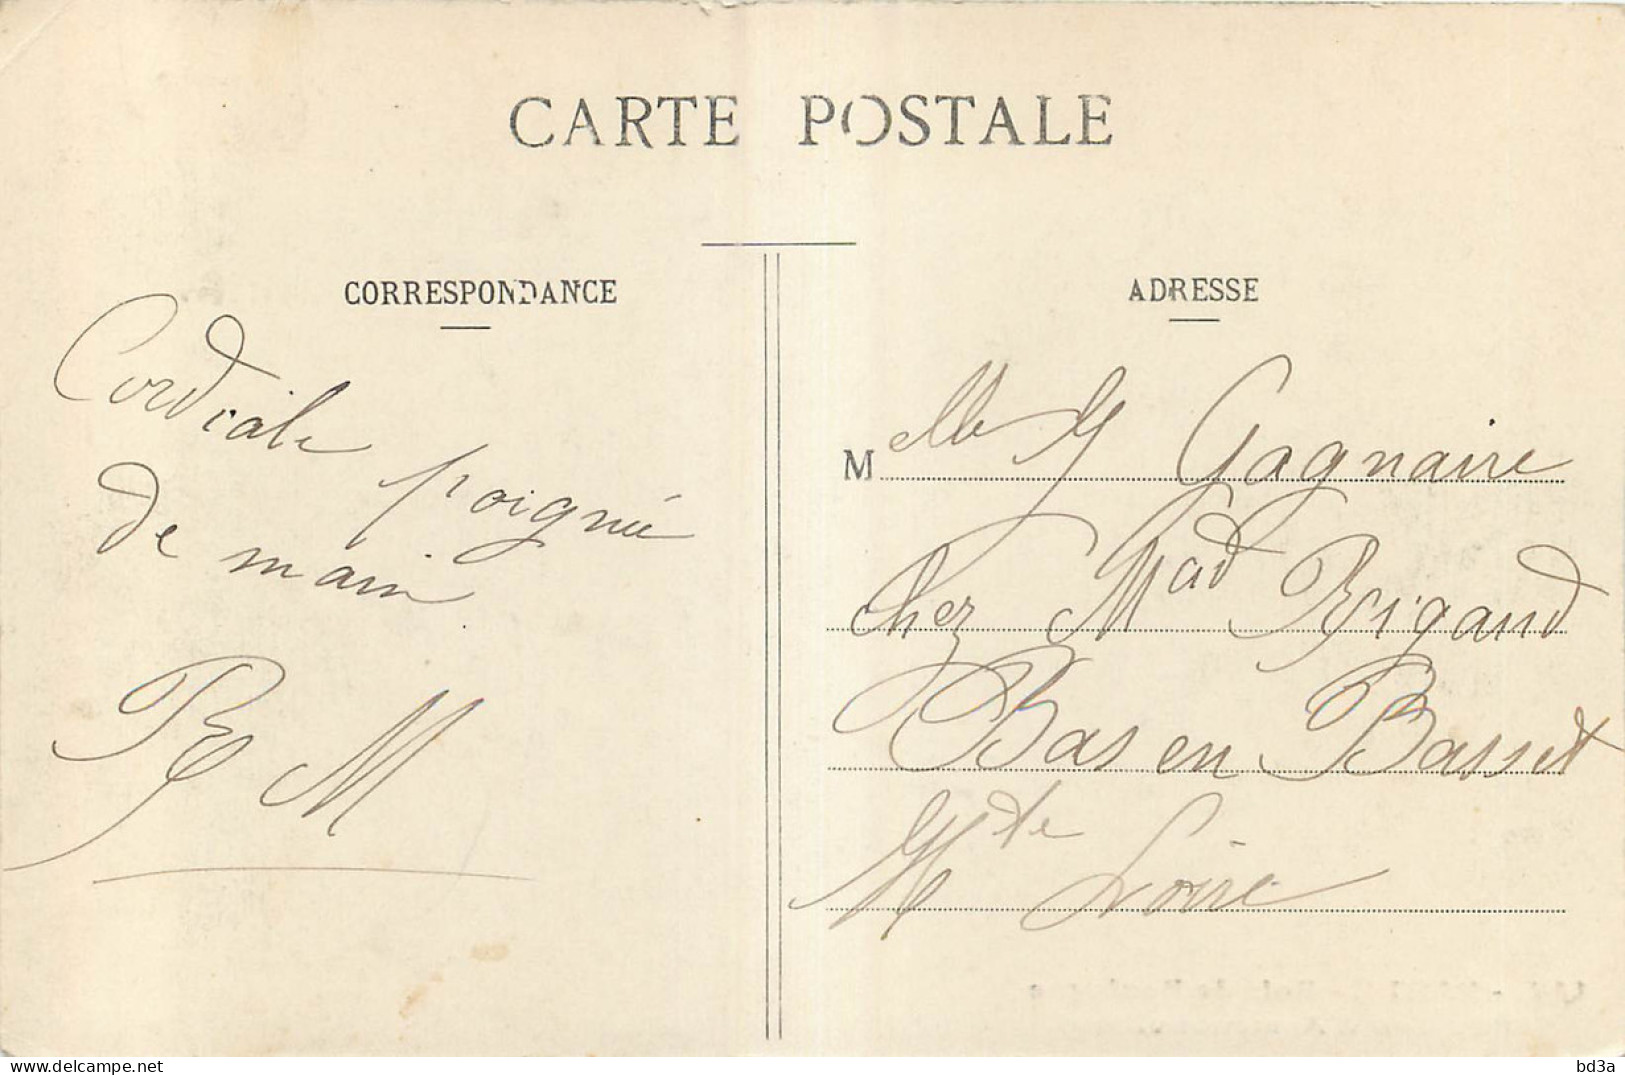 CARTE POSTALE
CORRESPONDANCE
Cordiale poignée
de main
ADRESSE
Melle Gagnaire
chez Mad Brigaud
Bas en Basset
Hte Loire
delcampe.net
bd3a